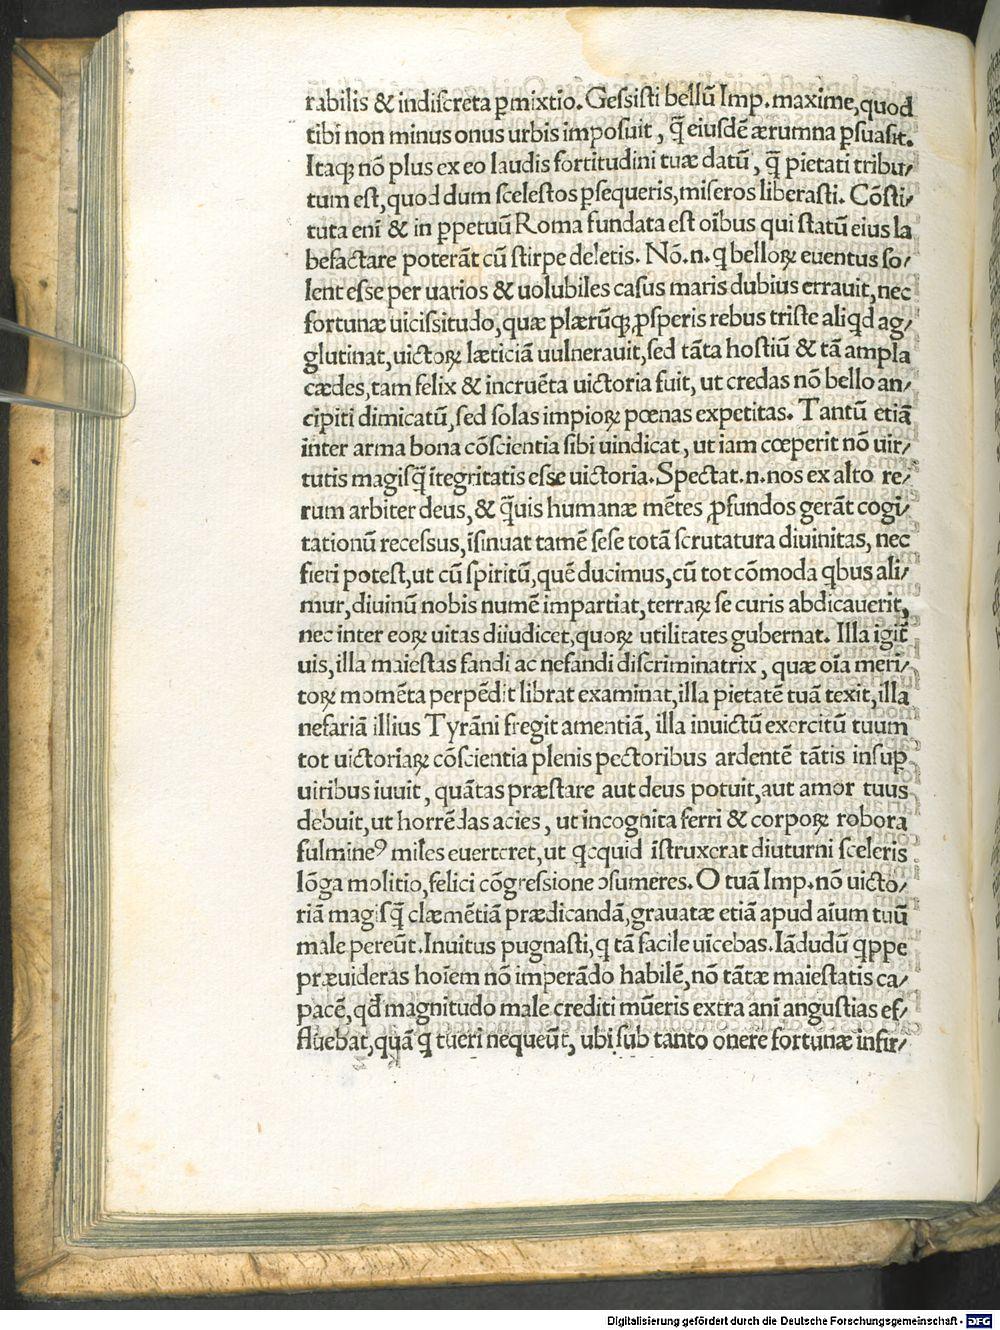 rabilis & indiſcreta ꝑmixtio. Geſſiſti bellũ Imp. maxime, quod
tibi non minus onus urbis impoſuit, q̃ eiuſdẽ ærumna ꝑſuaſit.
Itaqꝫ nõ plus ex eo laudis fortitudini tuæ datũ, q̃ pietati tribu/
tum eſt, quod dum ſceleſtos ꝑſequeris, miſeros liberaſti. Cõſti/
tuta eni̅ & in ꝑpetuũ Roma fundata eſt oi̅bus qui ſtatũ eius la
befactare poterãt cũ ſtirpe deletis. Nõ.n. ꝗ belloꝝ euentus ſo/
lent eſſe per uarios & uolubiles caſus maris dubius errauit, nec
fortunæ uiciſſitudo, quæ plærũqꝫ ꝓſperis rebus triſte aliꝗd ag/
glutinat, uictoꝝ læticiã uulnerauit, ſed tãta hoſtiũ & tã ampla
cædes, tam felix & incruẽta uictoria fuit, ut credas nõ bello an/
cipiti dimicatũ, ſed ſolas impioꝝ pœnas expetitas. Tantũ etiã
inter arma bona cõſcientia ſibi uindicat, ut iam cœperit nõ uir/
tutis magiſq̃ i̅tegritatis eſſe uictoria. Spectat.n. nos ex alto re/
rum arbiter deus, & q̃uis humanæ mẽtes ꝓfundos gerãt cogi/
tationũ receſſus, i̅ſinuat tamẽ ſeſe totã ſcrutatura diuinitas, nec
fieri poteſt, ut cũ ſpiritũ, quẽ ducimus, cũ tot cõmoda ꝗbus ali/
mur, diuinũ nobis numẽ impartiat, terraꝝ ſe curis abdicauerit,
nec inter eoꝝ uitas diiudicet, quoꝝ utilitates gubernat. Illa igit̃
uis, illa maieſtas fandi ac nefandi diſcriminatrix, quæ oi̅a meri/
toꝝ momẽta perpẽdit librat examinat, illa pietatẽ tuã texit, illa
nefariã illius Tyrãni fregit amentiã, illa inuictũ exercitũ tuum
tot uictoriaꝝ cõſcientia plenis pectoribus ardentẽ tãtis inſuꝑ
uiribus iuuit, quãtas præſtare aut deus potuit, aut amor tuus
debuit, ut horrẽdas acies, ut incognita ferri & corpoꝝ robora
fulmineꝰ miles euerteret, ut ꝗcquid i̅ſtruxerat diuturni ſceleris
lõga molitio, felici cõgreſſione ↄſumeres. O tuã Imp. nõ uicto/
riã magiſq̃ clæmẽtiã prædicandã, grauatæ etiã apud ai̅um tuũ
male pereũt. Inuitus pugnaſti, ꝗ tã facile ui̅cebas. Iãdudũ ꝗppe
præuideras hoi̅em nõ imperãdo habilẽ, nõ tãtæ maieſtatis ca/
pacẽ, qd̃ magnitudo male crediti mũeris extra ani̅ anguſtias ef/
fluebat, quã ꝗ tueri nequeũt, ubi ſub tanto onere fortunæ infir/
Digitalisierung gefördert durch die Deutsche Forschungsgemeinschaft - DFG